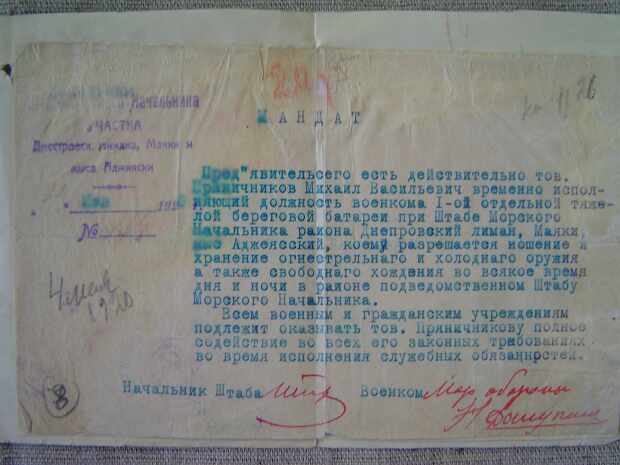 Начальника
УЧАСТКА
№
4 мая
1920
8
МАНДАТ
Пред"явительсего есть действительно тов.
Пряничников Михаил Васильевич временно испол-
няющий должность военкома I-ой отдельной тяже-
лой береговой батареи при Штабе Морского
Начальника района Днепровский лиман, Маяки,
Аджеясский, коему разрешается ношение и
хранение огнестрельнаго и холоднаго оружия
а также свободнаго хождения во всякое время
дня и ночи в районе подведомственном Штабу
Морского Начальника.
Всем военным и гражданским учреждениям
подлежит оказывать тов. Пряничникову полное
содействие во всех его законных требованиях
во время исполнения служебных обязанностей.
Начальник Штаба
Военком Мор обороны